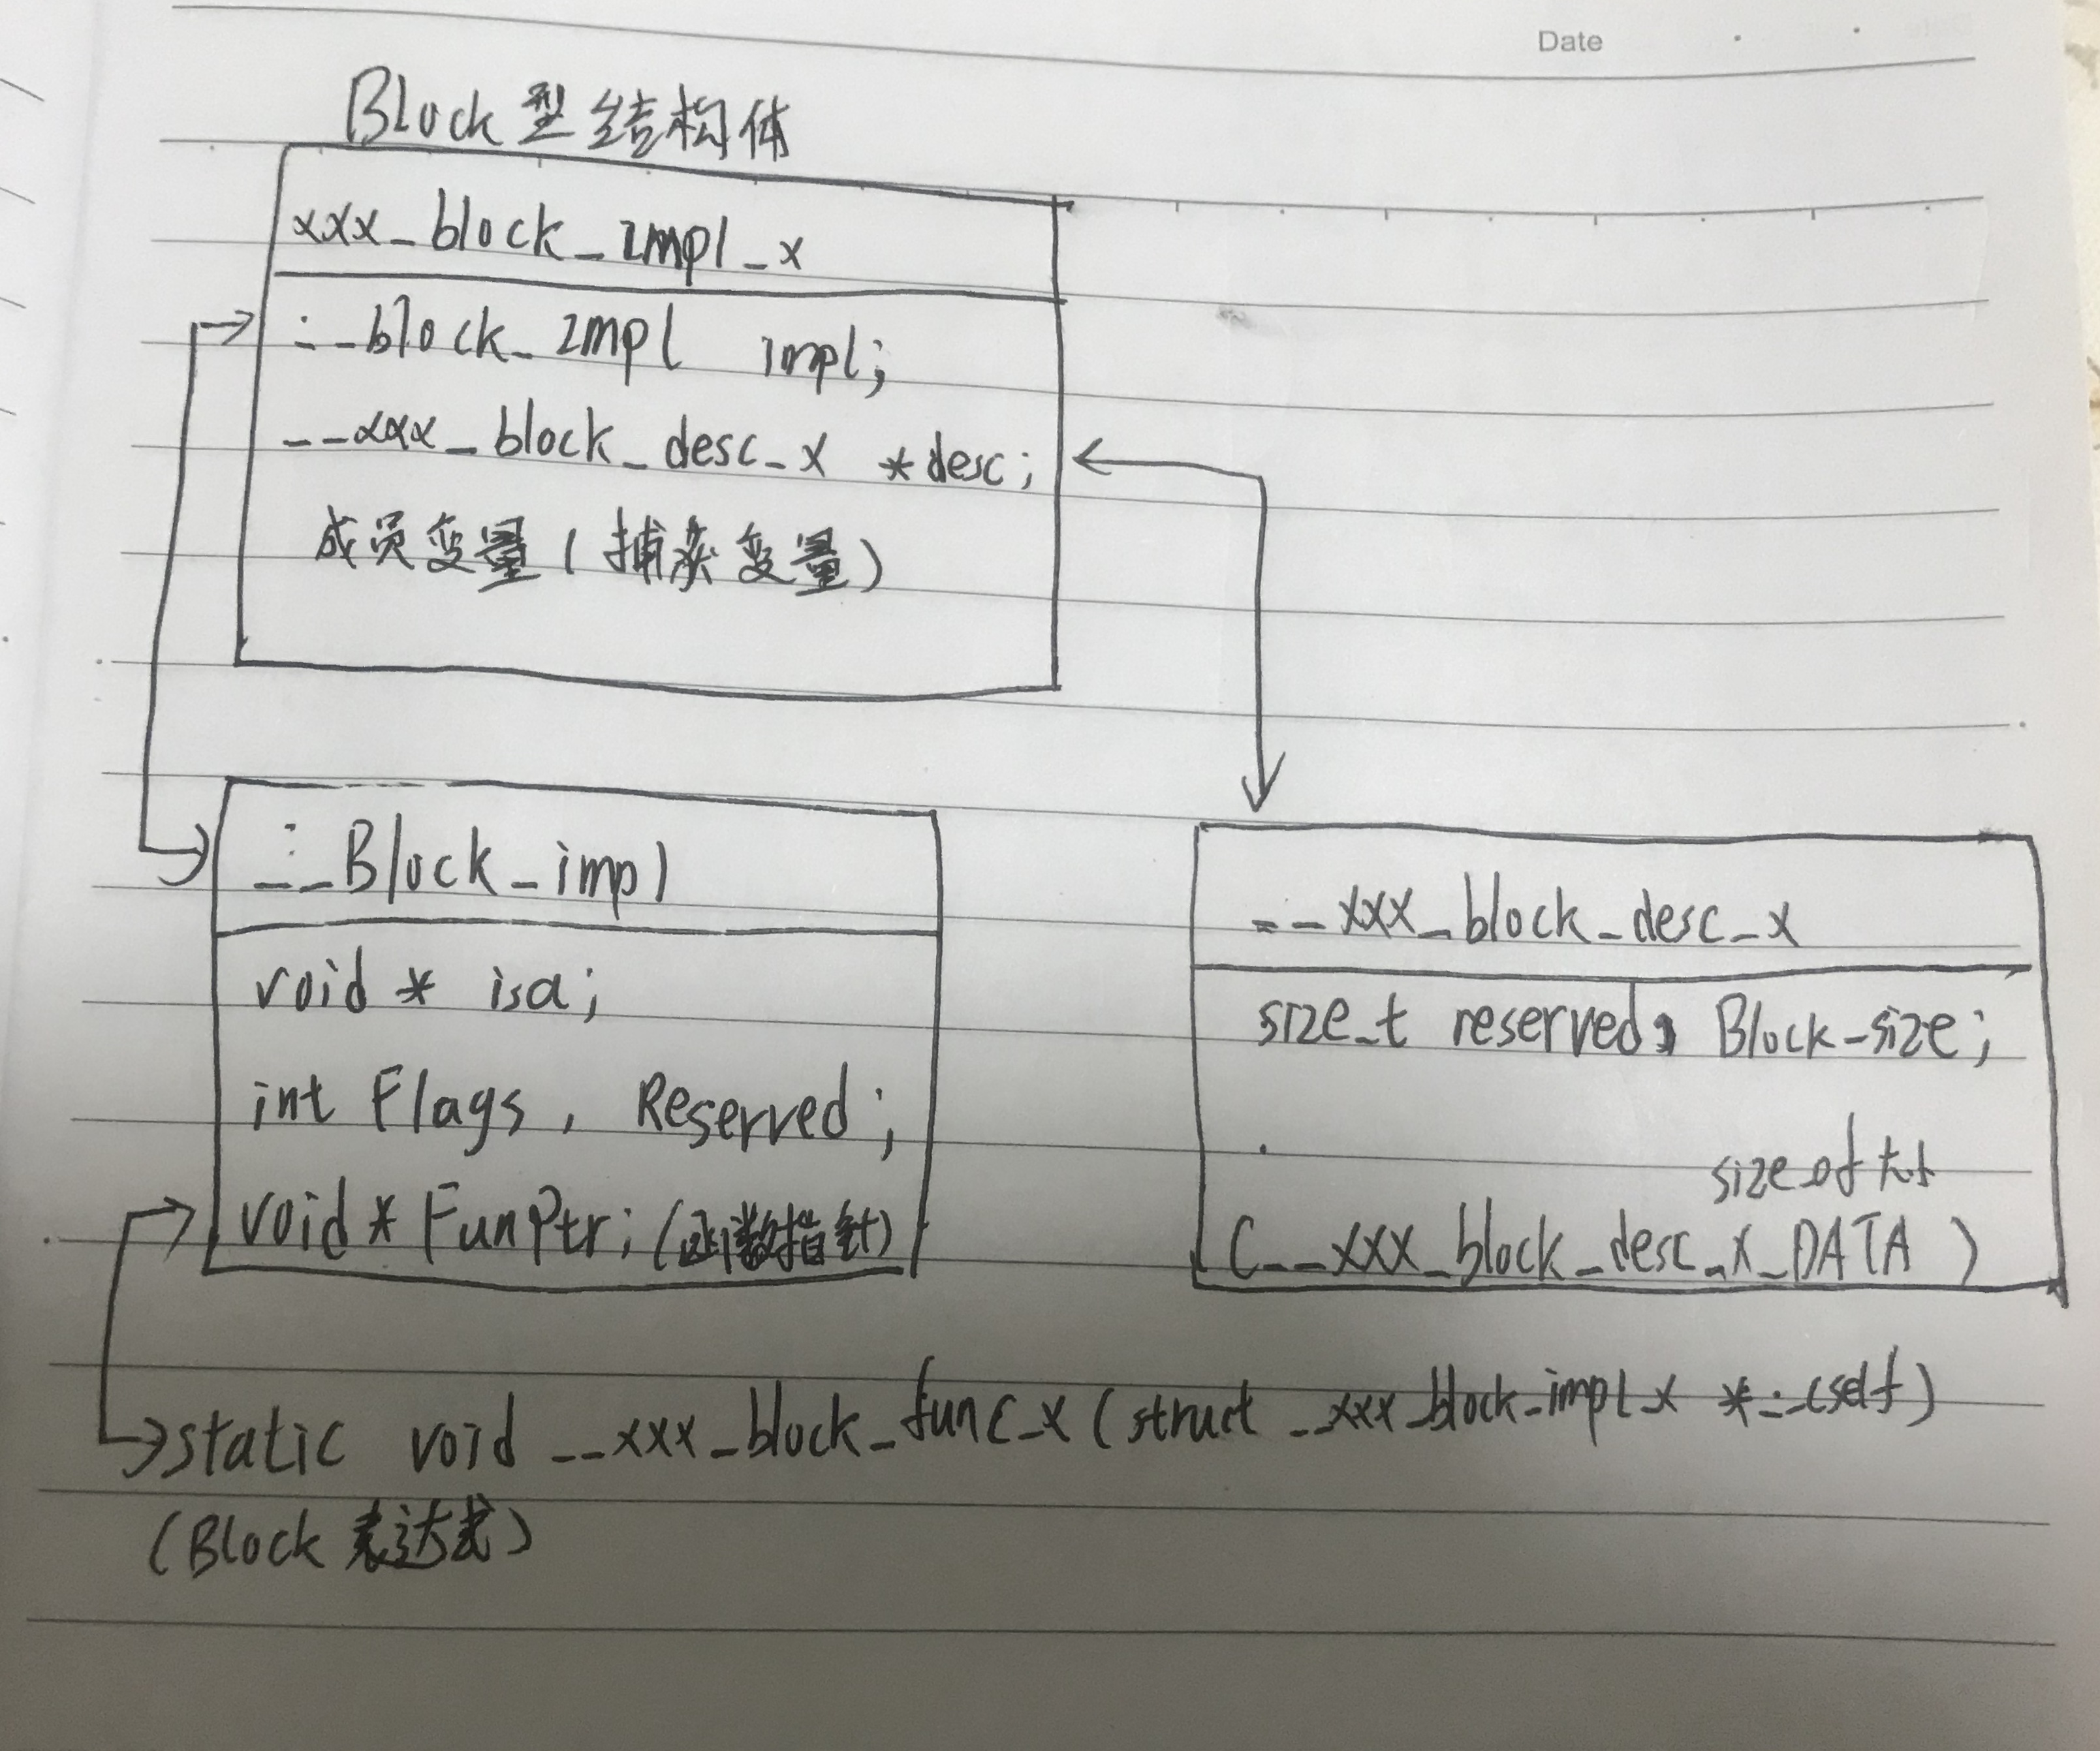 Date
Block型结构体
xxx_block_Impl_x
__block_Impl impl;
__xxx_block_desc_x *desc;
成员变量(捕获变量)
__Block_impl
void * isa;
int Flags, Reserved;
void * FunPtr;(函数指针)
__xxx_block_desc_x
size_t reserved, Block_size;
size of
(__xxx_block_desc_x_DATA)
static void __xxx_block_func_x (struct __xxx_block_impl_x *__cself)
(Block 表达式)